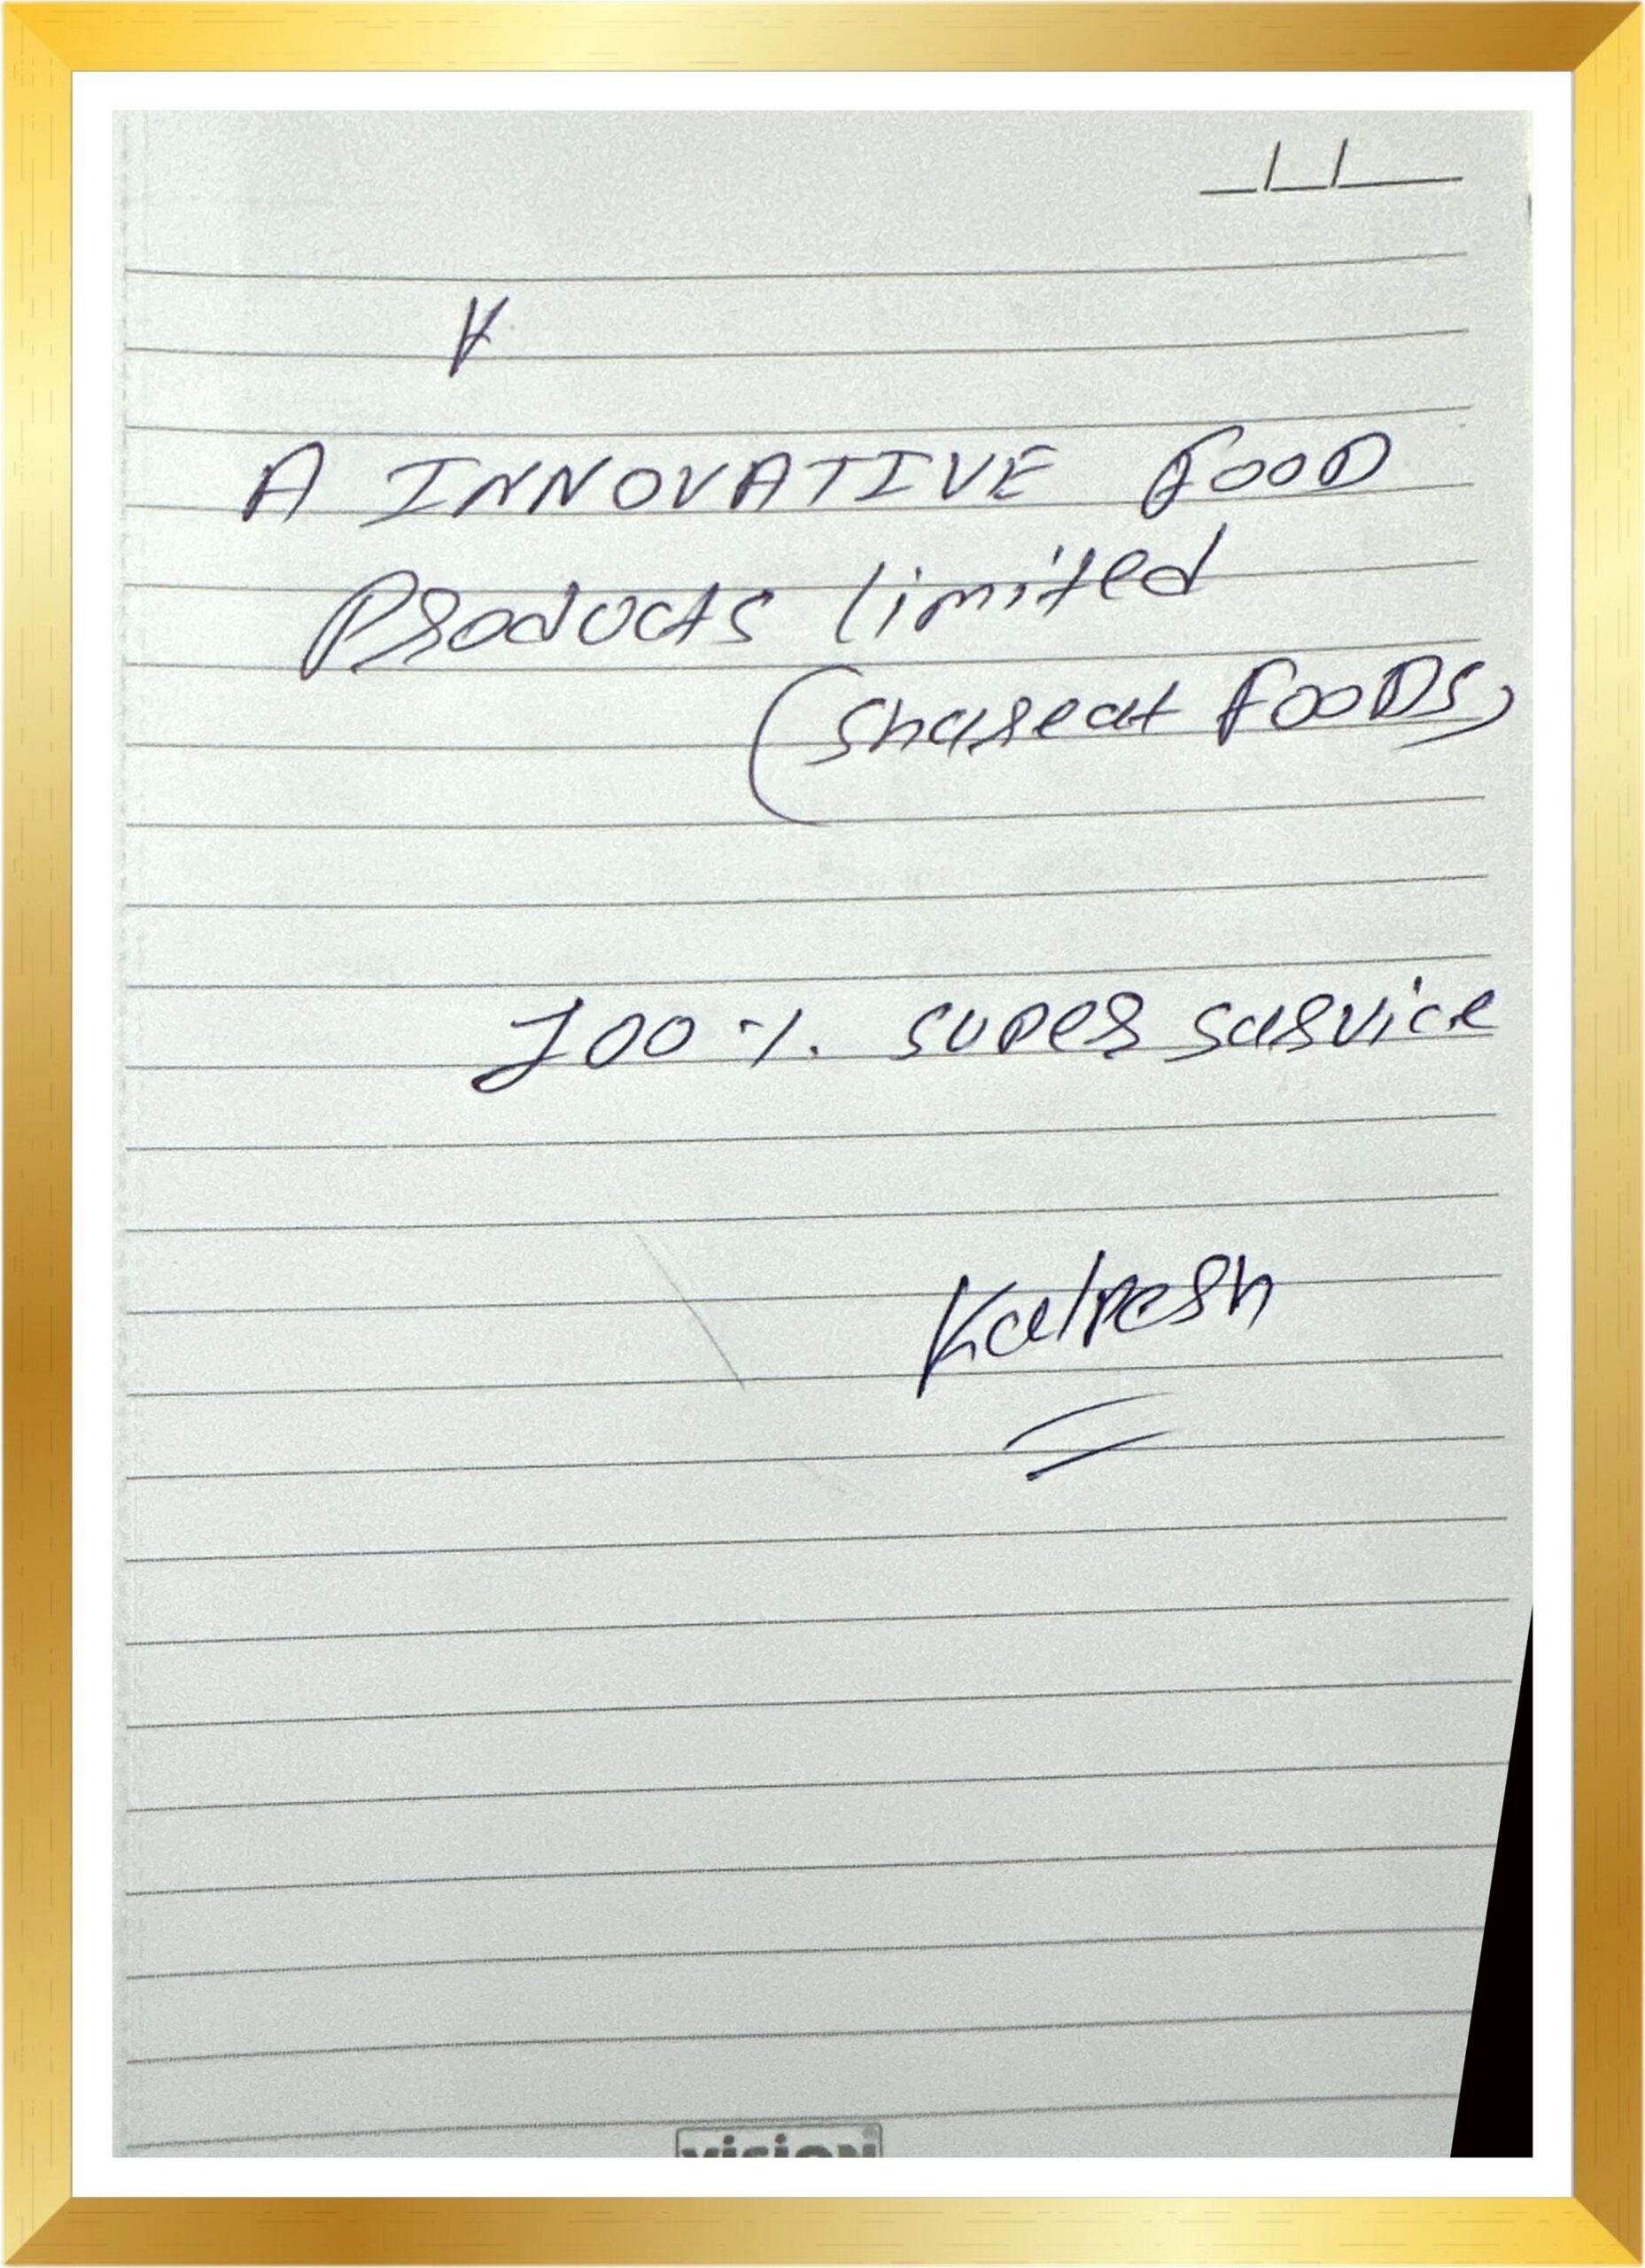 A INNOVATIVE FOOD
Products limited
(Shareat FOODS)
100%. super sarvice
Kalpesh
vision